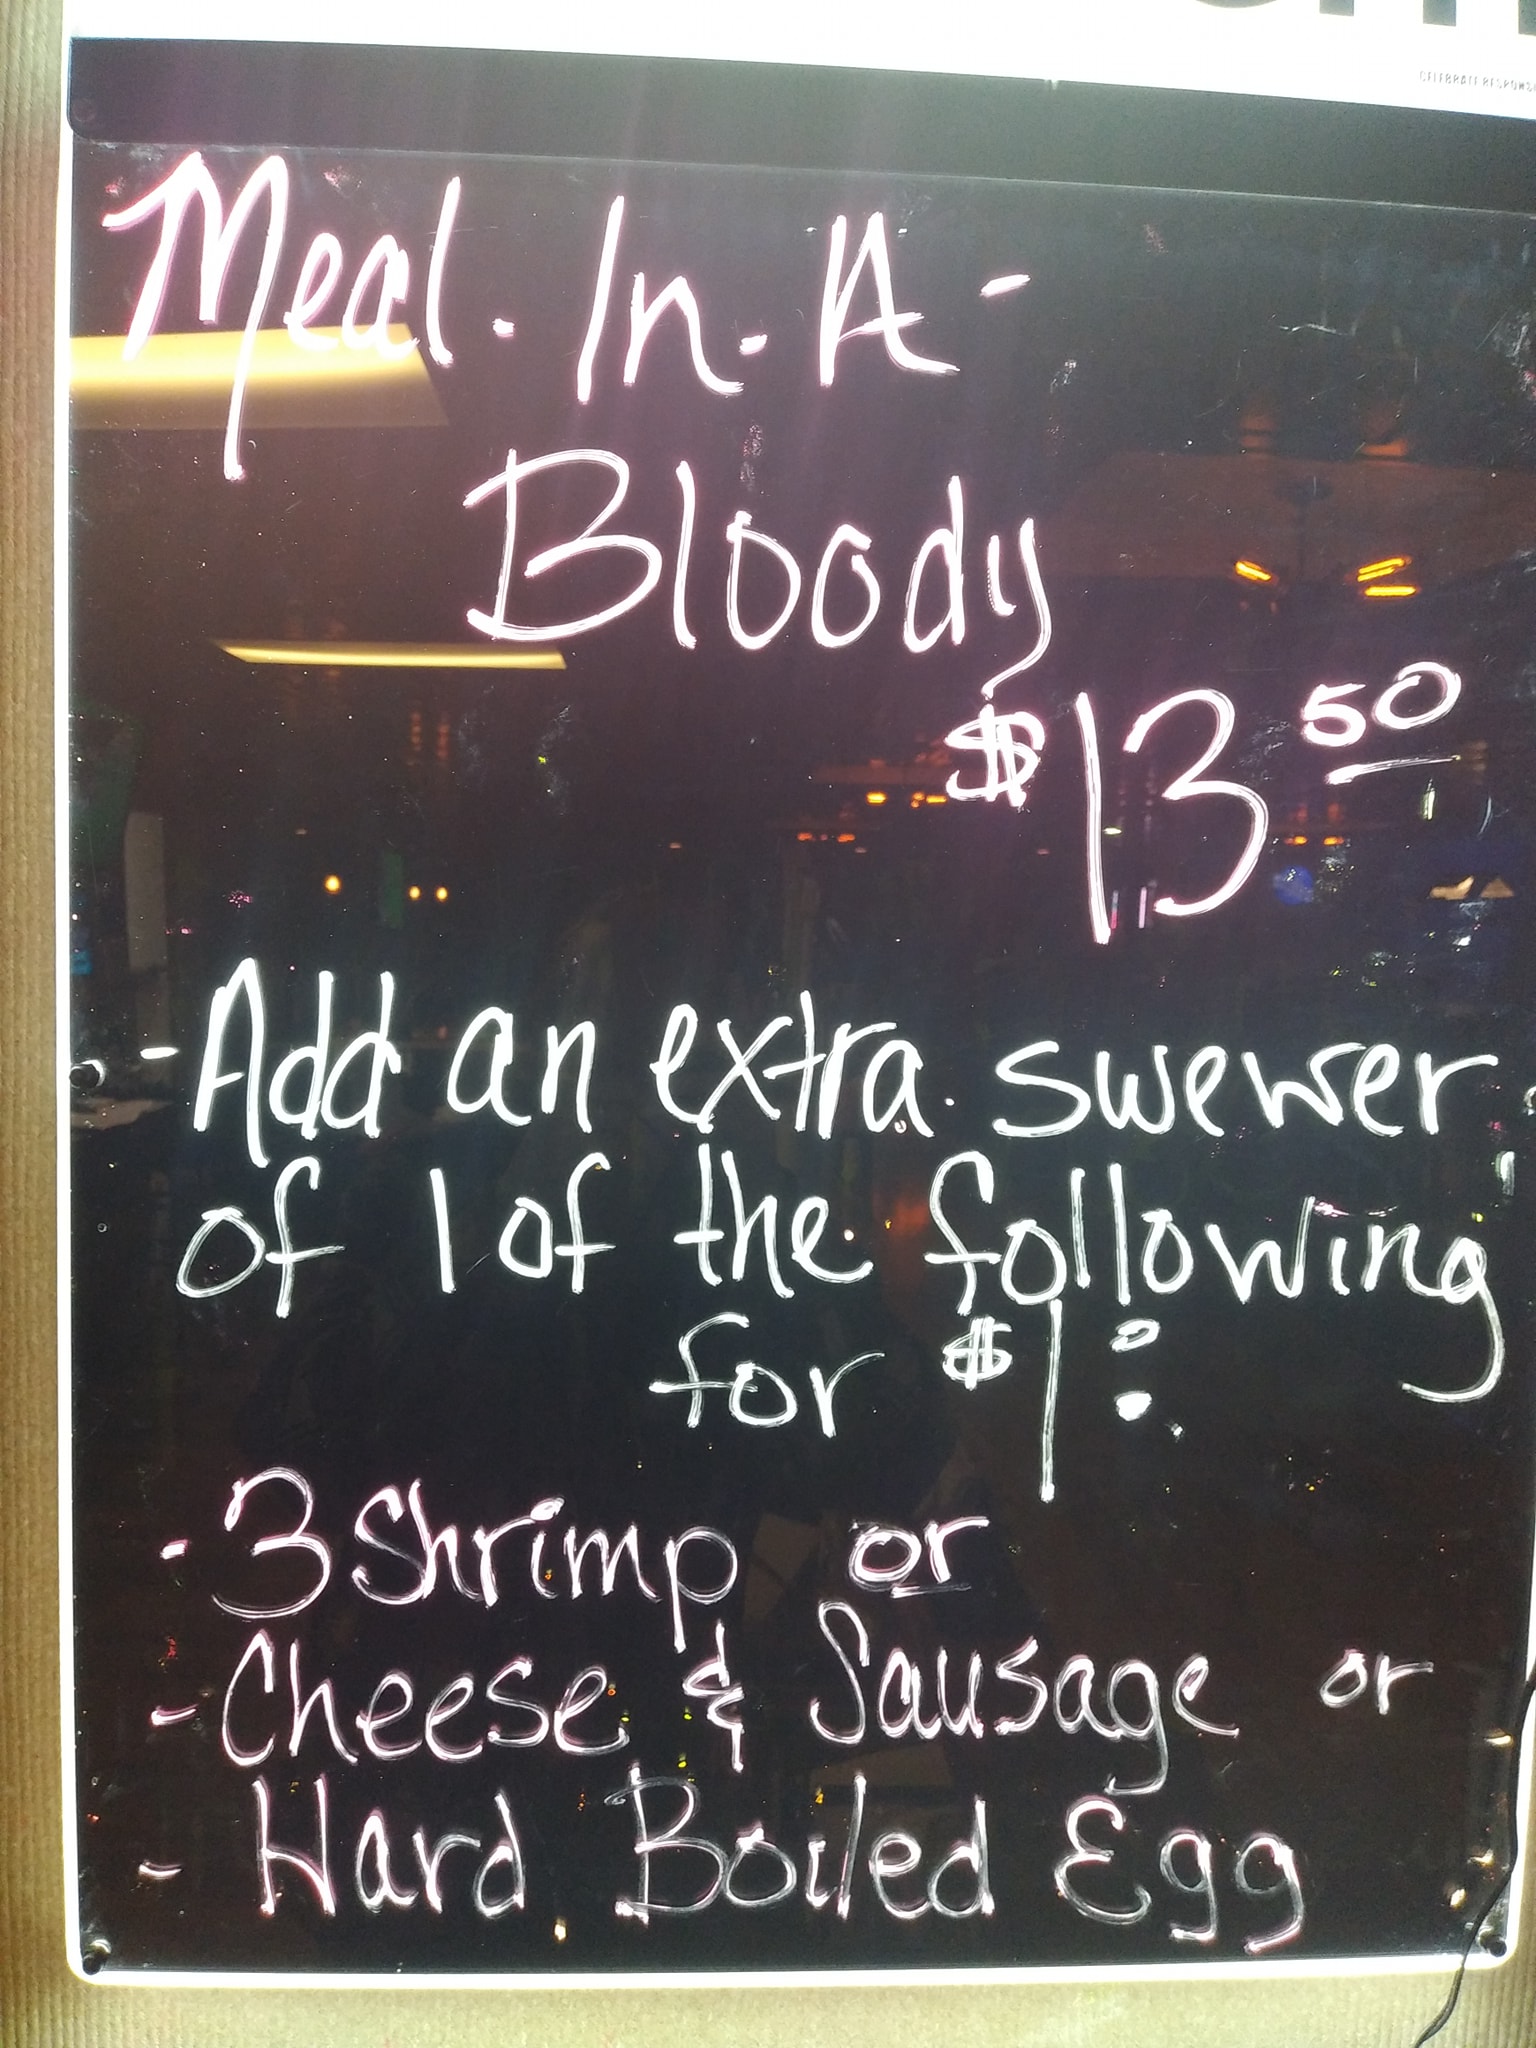 CELEBRATE RESPONSI
Meal. In. A -
Bloody
$13 50
- Add an extra swewer
of 1 of the following
for $1:
- 3 Shrimp or
- Cheese & Sausage or
- Hard Boiled Egg